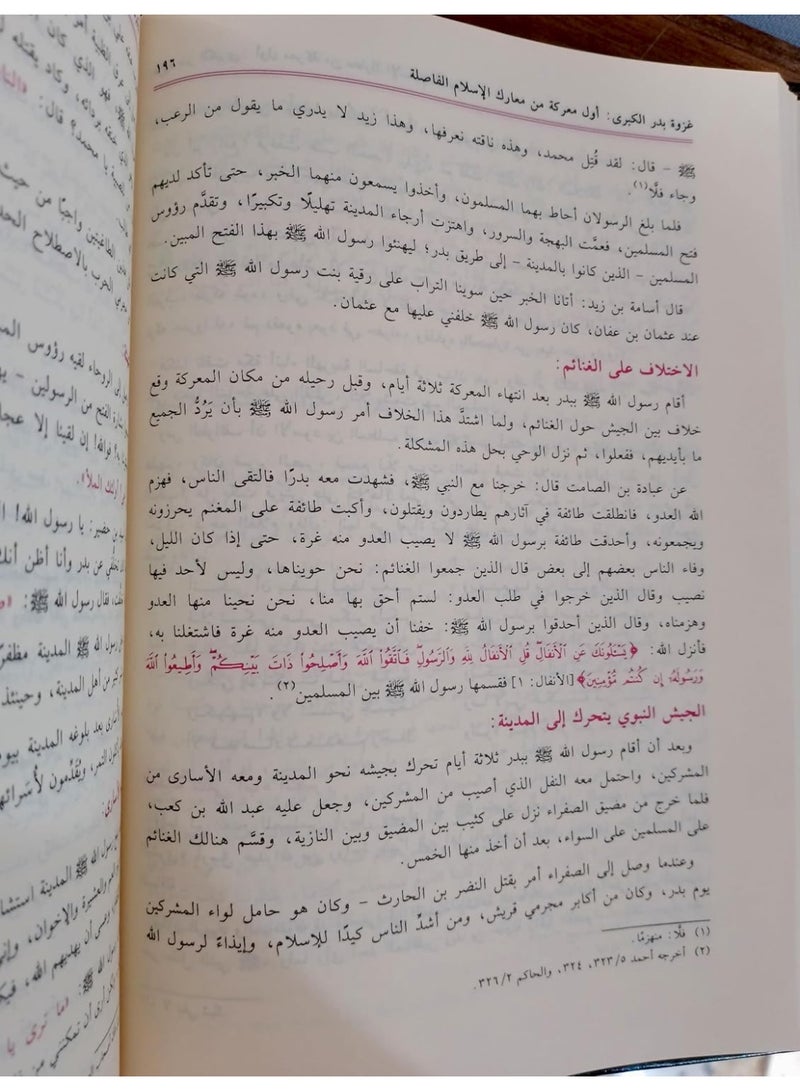 غزوة بدر الكبرى: أول معركة من معارك الإسلام الفاصلة ١٩٦
ﷺ - قال: لقد قُتِل محمد، وهذه ناقته نعرفها، وهذا زيد لا يدري ما يقول من الرعب،
وجاء فلًّا(١).
فلما بلغ الرسولان أحاط بهما المسلمون، وأخذوا يسمعون منهما الخبر، حتى تأكد لديهم
فتح المسلمين، فعمَّت البهجة والسرور، واهتزت أرجاء المدينة تهليلًا وتكبيرًا، وتقدَّم رؤوس
المسلمين - الذين كانوا بالمدينة - إلى طريق بدر؛ ليهنئوا رسول الله ﷺ بهذا الفتح المبين.
قال أسامة بن زيد: أتانا الخبر حين سوينا التراب على رقية بنت رسول الله ﷺ التي كانت
عند عثمان بن عفان، كان رسول الله ﷺ خلفني عليها مع عثمان.
الاختلاف على الغنائم:
أقام رسول الله ﷺ ببدر بعد انتهاء المعركة ثلاثة أيام، وقبل رحيله من مكان المعركة وقع
خلاف بين الجيش حول الغنائم، ولما اشتدَّ هذا الخلاف أمر رسول الله ﷺ بأن يَرُدَّ الجميع
ما بأيديهم، ففعلوا، ثم نزل الوحي بحل هذه المشكلة.
عن عبادة بن الصامت قال: خرجنا مع النبي ﷺ، فشهدت معه بدرًا فالتقى الناس، فهزم
الله العدو، فانطلقت طائفة في آثارهم يطاردون ويقتلون، وأكبت طائفة على المغنم يحرزونه
ويجمعونه، وأحدقت طائفة برسول الله ﷺ لا يصيب العدو منه غرة، حتى إذا كان الليل،
وفاء الناس بعضهم إلى بعض قال الذين جمعوا الغنائم: نحن حويناها، وليس لأحد فيها
نصيب وقال الذين خرجوا في طلب العدو: لستم أحق بها منا، نحن نحينا منها العدو
وهزمناه، وقال الذين أحدقوا برسول الله ﷺ: خفنا أن يصيب العدو منه غرة فاشتغلنا به،
فأنزل الله: ﴿يَسْـَٔلُونَكَ عَنِ ٱلْأَنفَالِ قُلِ ٱلْأَنفَالُ لِلَّهِ وَٱلرَّسُولِ فَٱتَّقُوا۟ ٱللَّهَ وَأَصْلِحُوا۟ ذَاتَ بَيْنِكُمْ وَأَطِيعُوا۟ ٱللَّهَ
وَرَسُولَهُۥٓ إِن كُنتُم مُّؤْمِنِينَ﴾ [الأنفال: ١] فقسمها رسول الله ﷺ بين المسلمين(٢).
الجيش النبوي يتحرك إلى المدينة:
وبعد أن أقام رسول الله ﷺ ببدر ثلاثة أيام تحرك بجيشه نحو المدينة ومعه الأسارى من
المشركين، واحتمل معه النفل الذي أصيب من المشركين، وجعل عليه عبد الله بن كعب،
فلما خرج من مضيق الصفراء نزل على كثيب بين المضيق وبين النازية، وقسَّم هنالك الغنائم
على المسلمين على السواء، بعد أن أخذ منها الخمس.
وعندما وصل إلى الصفراء أمر بقتل النضر بن الحارث - وكان هو حامل لواء المشركين
يوم بدر، وكان من أكابر مجرمي قريش، ومن أشدِّ الناس كيدًا للإسلام، وإيذاءً لرسول الله
(١) فلًّا: منهزمًا.
(٢) أخرجه أحمد ٥/٣٢٣، ٣٢٤، والحاكم ٢/٣٢٦.